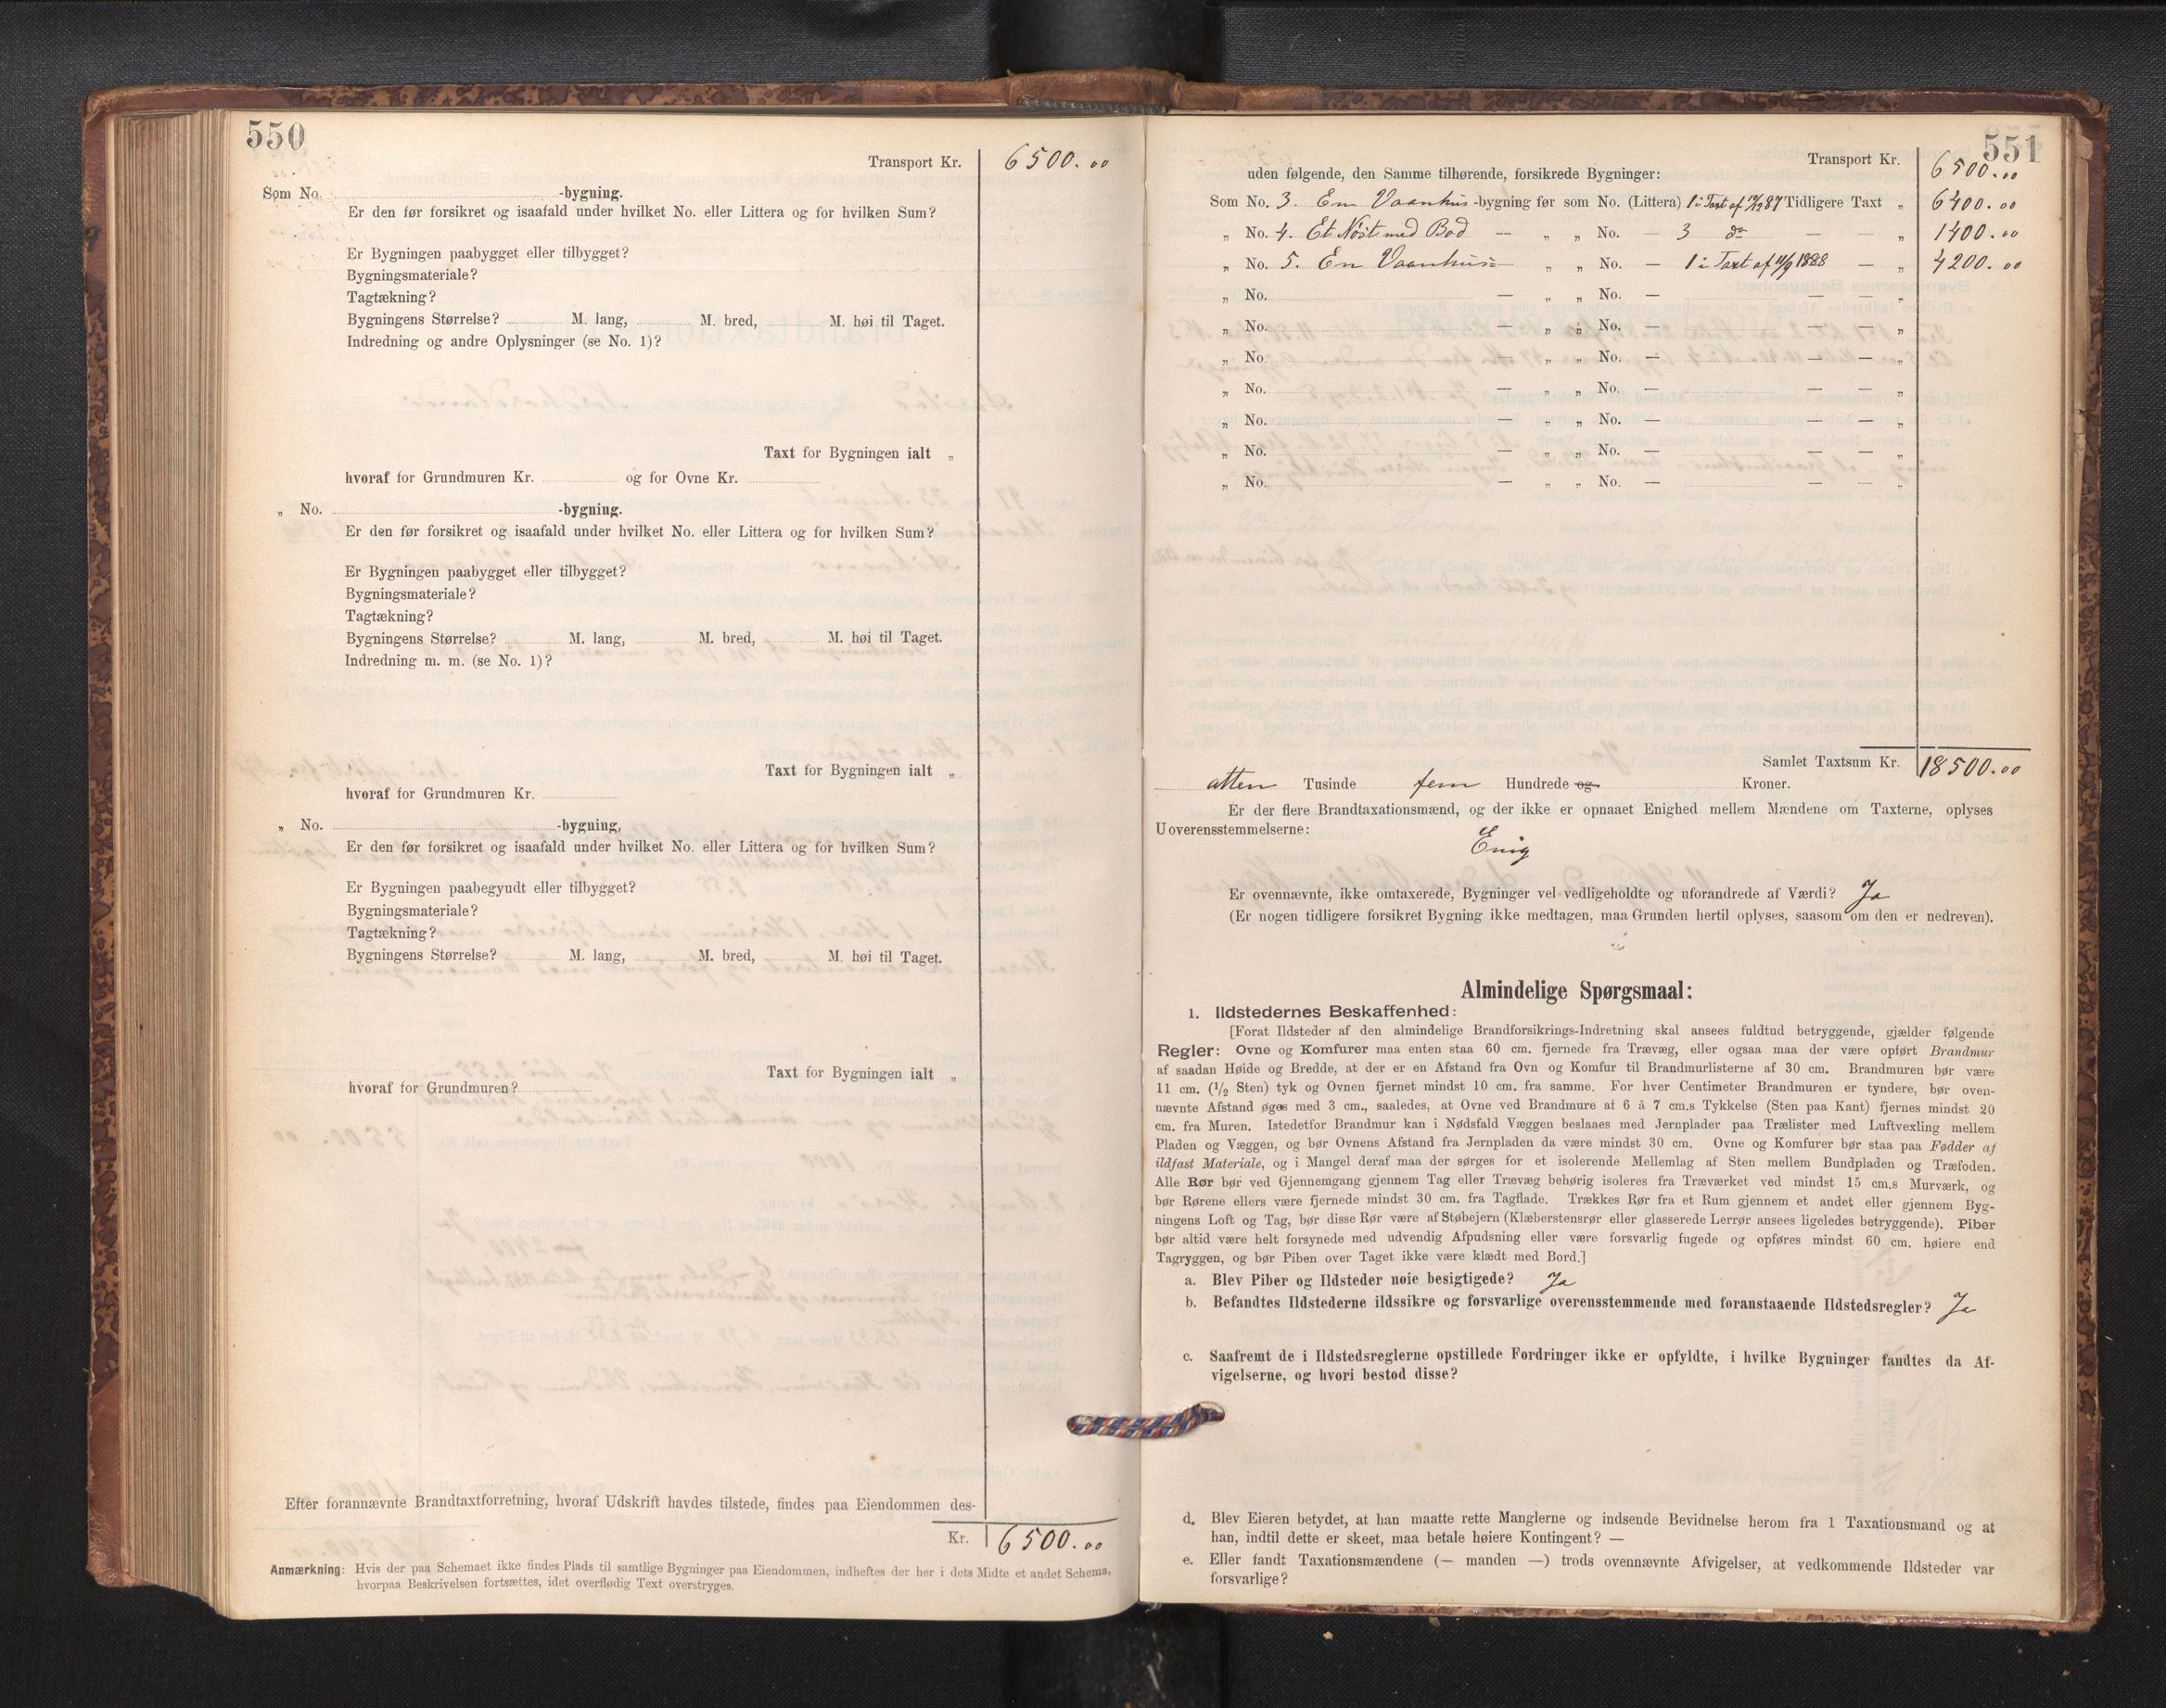 550
Transport Kr. 6500.00
Som No. -bygning.
Er den før forsikret og isaafald under hvilket No. eller Littera og for hvilken Sum?
Er Bygningen paabygget eller tilbygget?
Bygningsmateriale?
Tagtækning?
Bygningens Størrelse? M. lang, M. bred, M. høi til Taget.
Indredning og andre Oplysninger (se No. 1)?
Taxt for Bygningen ialt „
hvoraf for Grundmuren Kr. og for Ovne Kr.
„ No. -bygning.
Er den før forsikret og isaafald under hvilket No. eller Littera og for hvilken Sum?
Er Bygningen paabygget eller tilbygget?
Bygningsmateriale?
Tagtækning?
Bygningens Størrelse? M. lang, M. bred, M. høi til Taget.
Indredning m. m. (se No. 1)?
Taxt for Bygningen ialt „
hvoraf for Grundmuren Kr.
„ No. -bygning,
Er den før forsikret og isaafald under hvilket No. eller Littera og for hvilken Sum?
Er Bygningen paabegyudt eller tilbygget?
Bygningsmateriale?
Tagtækning?
Bygningens Størrelse? M. lang, M. bred, M. høi til Taget.
Taxt for Bygningen ialt „
hvoraf for Grundmuren?
Efter forannævnte Brandtaxtforretning, hvoraf Udskrift havdes tilstede, findes paa Eiendommen des-
Kr. 6500.00
Anmærkning: Hvis der paa Schemaet ikke findes Plads til samtlige Bygninger paa Eiendommen, indheftes der her i dets Midte et andet Schema,
hvorpaa Beskrivelsen fortsættes, idet overflødig Text overstryges.
551
Transport Kr. 6500.00
uden følgende, den Samme tilhørende, forsikrede Bygninger:
Som No. 3. En Vaanhus -bygning før som No. (Littera) 1 i Taxt af 87 Tidligere Taxt „ 6400.00
„ No. 4. Et Nøst med Bod — „ „ No. — 3 do — — „ 1400.00
„ No. 5. En Vaanhus — „ „ No. — 1 i Taxt af 11/9 1888 — „ 4200.00
„ No. — „ „ No. — — — „
„ No. — „ „ No. — — — „
„ No. — „ „ No. — — — „
„ No. — „ „ No. — — — „
„ No. — „ „ No. — — — „
„ No. — „ „ No. — — — „
„ No. — „ „ No. — — — „
Samlet Taxtsum Kr. 18500.00
atten Tusinde fem Hundrede og Kroner.
Er der flere Brandtaxationsmænd, og der ikke er opnaaet Enighed mellem Mændene om Taxterne, oplyses
Uoverensstemmelserne:
Enig
Er ovennævnte, ikke omtaxerede, Bygninger vel vedligeholdte og uforandrede af Værdi? Ja
(Er nogen tidligere forsikret Bygning ikke medtagen, maa Grunden hertil oplyses, saasom om den er nedreven).
Almindelige Spørgsmaal:
1. Ildstedernes Beskaffenhed:
[Forat Ildsteder af den almindelige Brandforsikrings-Indretning skal ansees fuldtud betryggende, gjælder følgende
Regler: Ovne og Komfurer maa enten staa 60 cm. fjernede fra Trævæg, eller ogsaa maa der være opført Brandmur
af saadan Høide og Bredde, at der er en Afstand fra Ovn og Komfur til Brandmurlisterne af 30 cm. Brandmuren bør være
11 cm. (1/2 Sten) tyk og Ovnen fjernet mindst 10 cm. fra samme. For hver Centimeter Brandmuren er tyndere, bør oven-
nævnte Afstand øges med 3 cm., saaledes, at Ovne ved Brandmure af 6 à 7 cm.s Tykkelse (Sten paa Kant) fjernes mindst 20
cm. fra Muren. Istedetfor Brandmur kan i Nødsfald Væggen beslaaes med Jernplader paa Trælister med Luftvexling mellem
Pladen og Væggen, og bør Ovnens Afstand fra Jernpladen da være mindst 30 cm. Ovne og Komfurer bør staa paa Fødder af
ildfast Materiale, og i Mangel deraf maa der sørges for et isolerende Mellemlag af Sten mellem Bundpladen og Træfoden.
Alle Rør bør ved Gjennemgang gjennem Tag eller Trævæg behørig isoleres fra Træværket ved mindst 15 cm.s Murværk, og
bør Rørene ellers være fjernede mindst 30 cm. fra Tagflade. Trækkes Rør fra et Rum gjennem et andet eller gjennem Byg-
ningens Loft og Tag, bør disse Rør være af Støbejern (Klæberstensrør eller glasserede Lerrør ansees ligeledes betryggende). Piber
bør altid være helt forsynede med udvendig Afpudsning eller være forsvarlig fugede og opføres mindst 60 cm. høiere end
Tagryggen, og bør Piben over Taget ikke være klædt med Bord.]
a. Blev Piber og Ildsteder nøie besigtigede? Ja
b. Befandtes Ildstederne ildssikre og forsvarlige overensstemmende med foranstaaende Ildstedsregler? Ja
c. Saafremt de i Ildstedsreglerne opstillede Fordringer ikke er opfyldte, i hvilke Bygninger fandtes da Af-
vigelserne, og hvori bestod disse?
d. Blev Eieren betydet, at han maatte rette Manglerne og indsende Bevidnelse herom fra 1 Taxationsmand og at
han, indtil dette er skeet, maa betale høiere Kontingent? —
e. Eller fandt Taxationsmændene (— manden —) trods ovennævnte Afvigelser, at vedkommende Ildsteder var
forsvarlige?